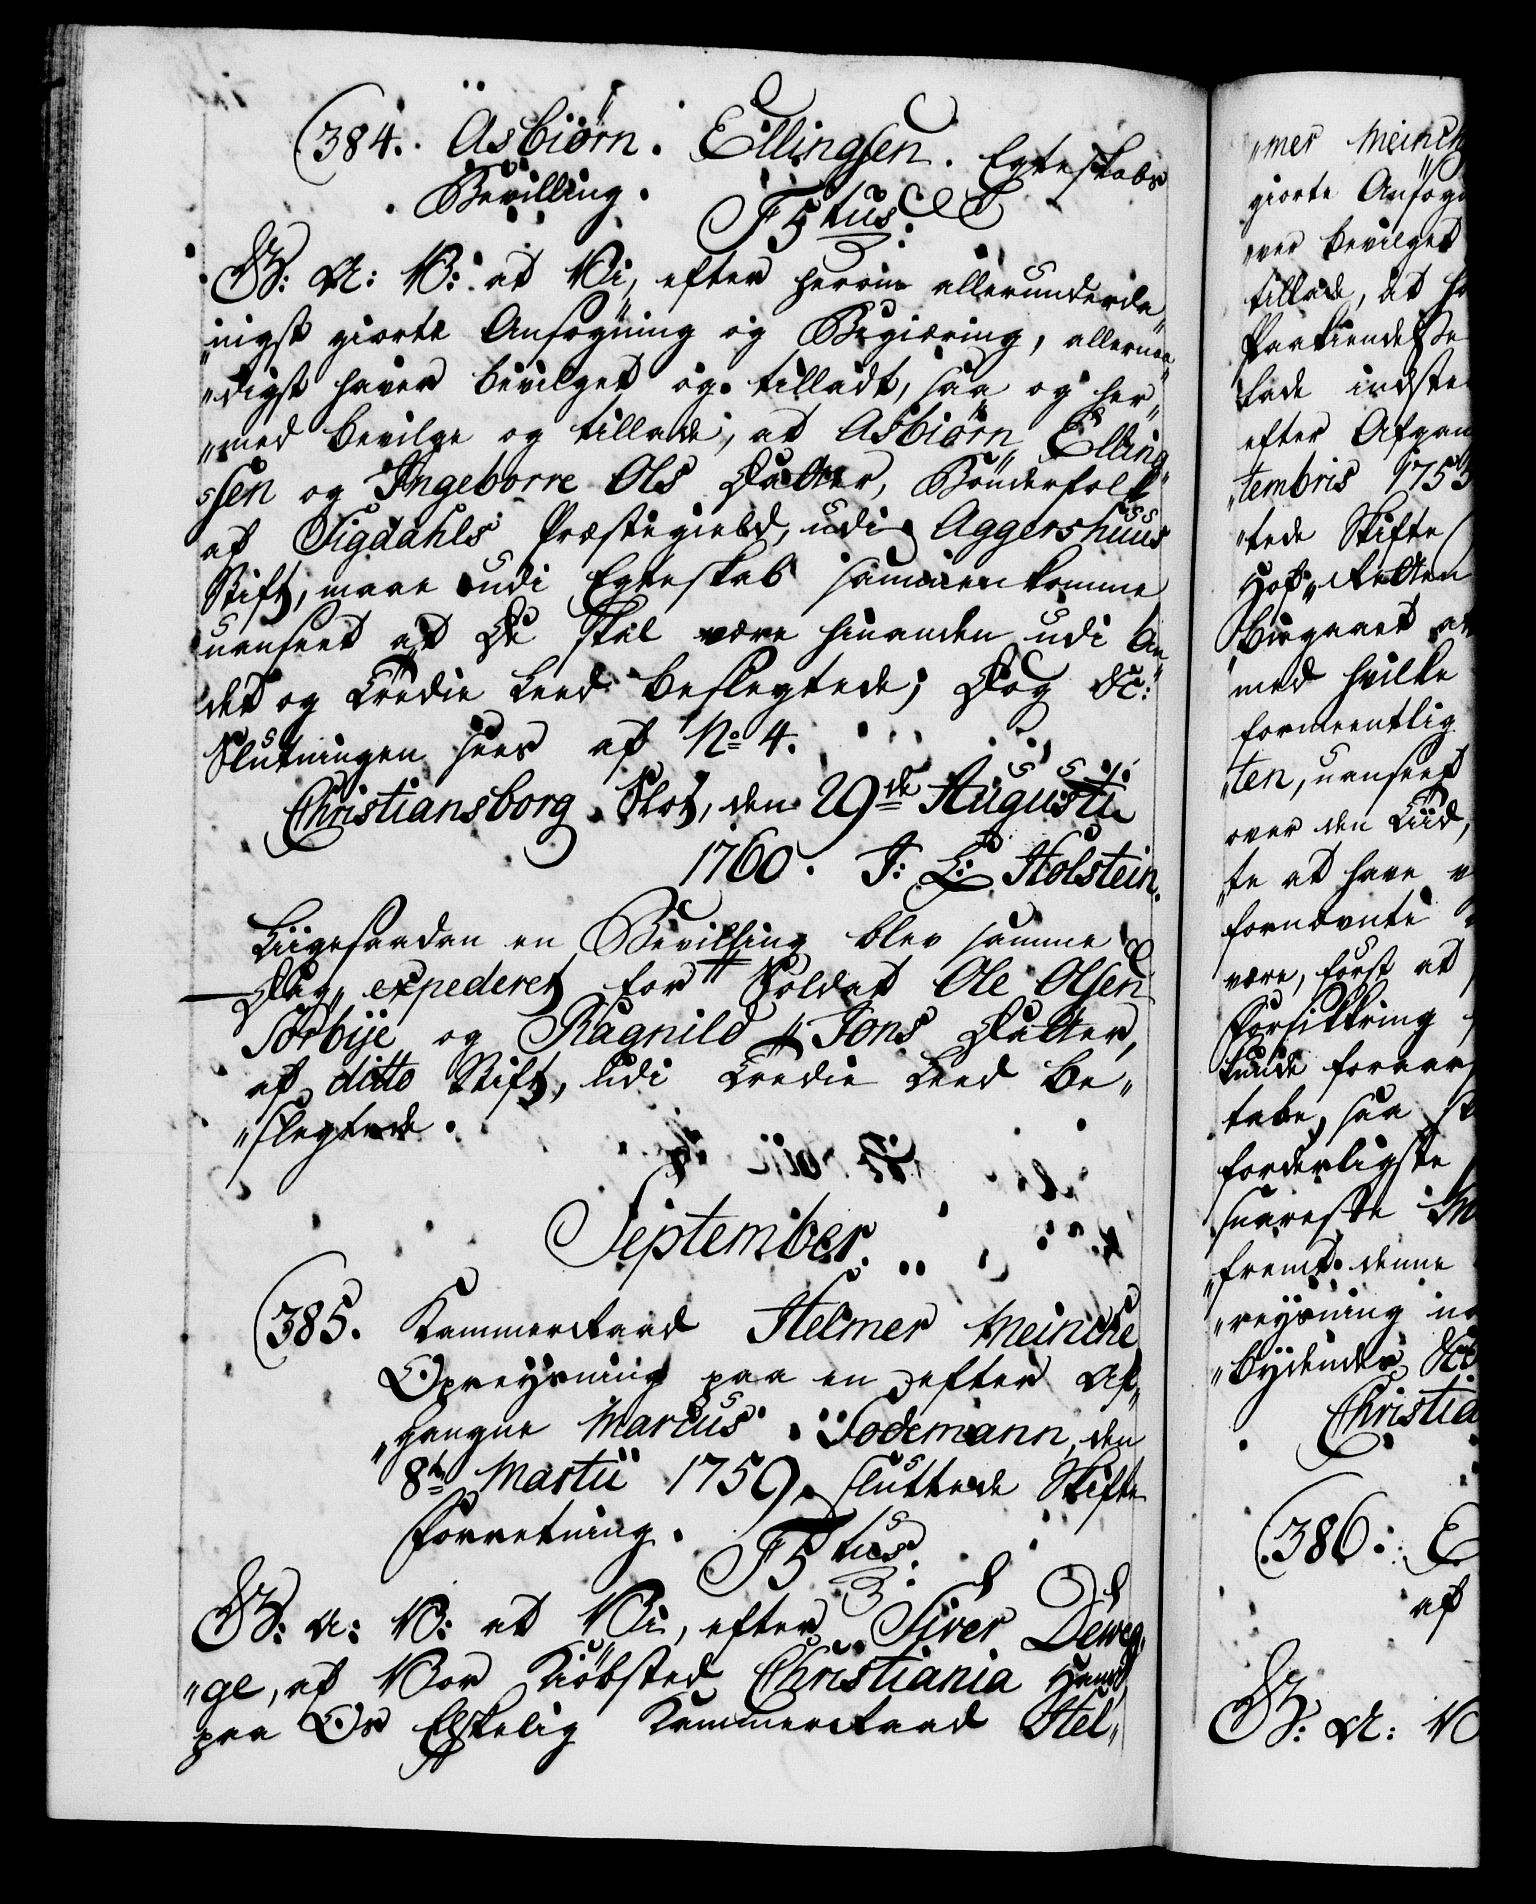 (384. Asbiørn Ellingsen Egteskabs
Bevilling.
F5tus:
G: A: V: at Vi, efter herom allerunderda„
„nigst giorte Ansøgning og Begiæring, allernaa„
„digst haver bevilget og tilladt, saa og her„
„med bevilge og tillade, at Asbiørn Elling„
„sen og Ingeborre Ols Datter, Bønderfolk
af Sigdahls Præstegield, udi Aggershuus
Stift, maae udi Egteskab sammenkomme
uanseet at De skal være hinanden udi An„
det og Tredie Leed beslegtede; Dog &c:
Slutningen sees af No 4.
Christiansborg Slot, den 29de Augusti
1760. J: L: Holstein.
Liigesaadan en Bevilling blev samme
Dag expederet for Soldat Ole Olsen
Sørbÿe og Ragnild Jons Datter,
af ditto Stift, udi Tredie Leed be„
„slegtede.
September.
(385. Kammerraad Helmer Meincke
Opreysning paa en efter Af„
„gangne Marcus Todemann, den
8de Martii 1759. sluttede Skifte
Forretning.
F5tus:
G: A: V: at Vi, efter Siver Deweg„
„ge, af Vor Kiøbsted Christiania Hans,
paa Os Elskelig Kammerraad Hel„
„mer Meinck
giorte Ansøgn
„ver bevilget
tillade, at h
Paakiendelse
lade indste
efter Afgan
„tembris 1753
„tede Skifte
Hof„Retten
Borgaaet at
med hvilke
formeentlig
„ten, uanseet
over den Tiid,
„te at have
fornævnte
være, først at
Forsikkring
kunde foraar
tabe, saa
forderligste
snareste M
„fremt denne
„reysning in
„bydende
Christia
(386: E
af
G: A: V